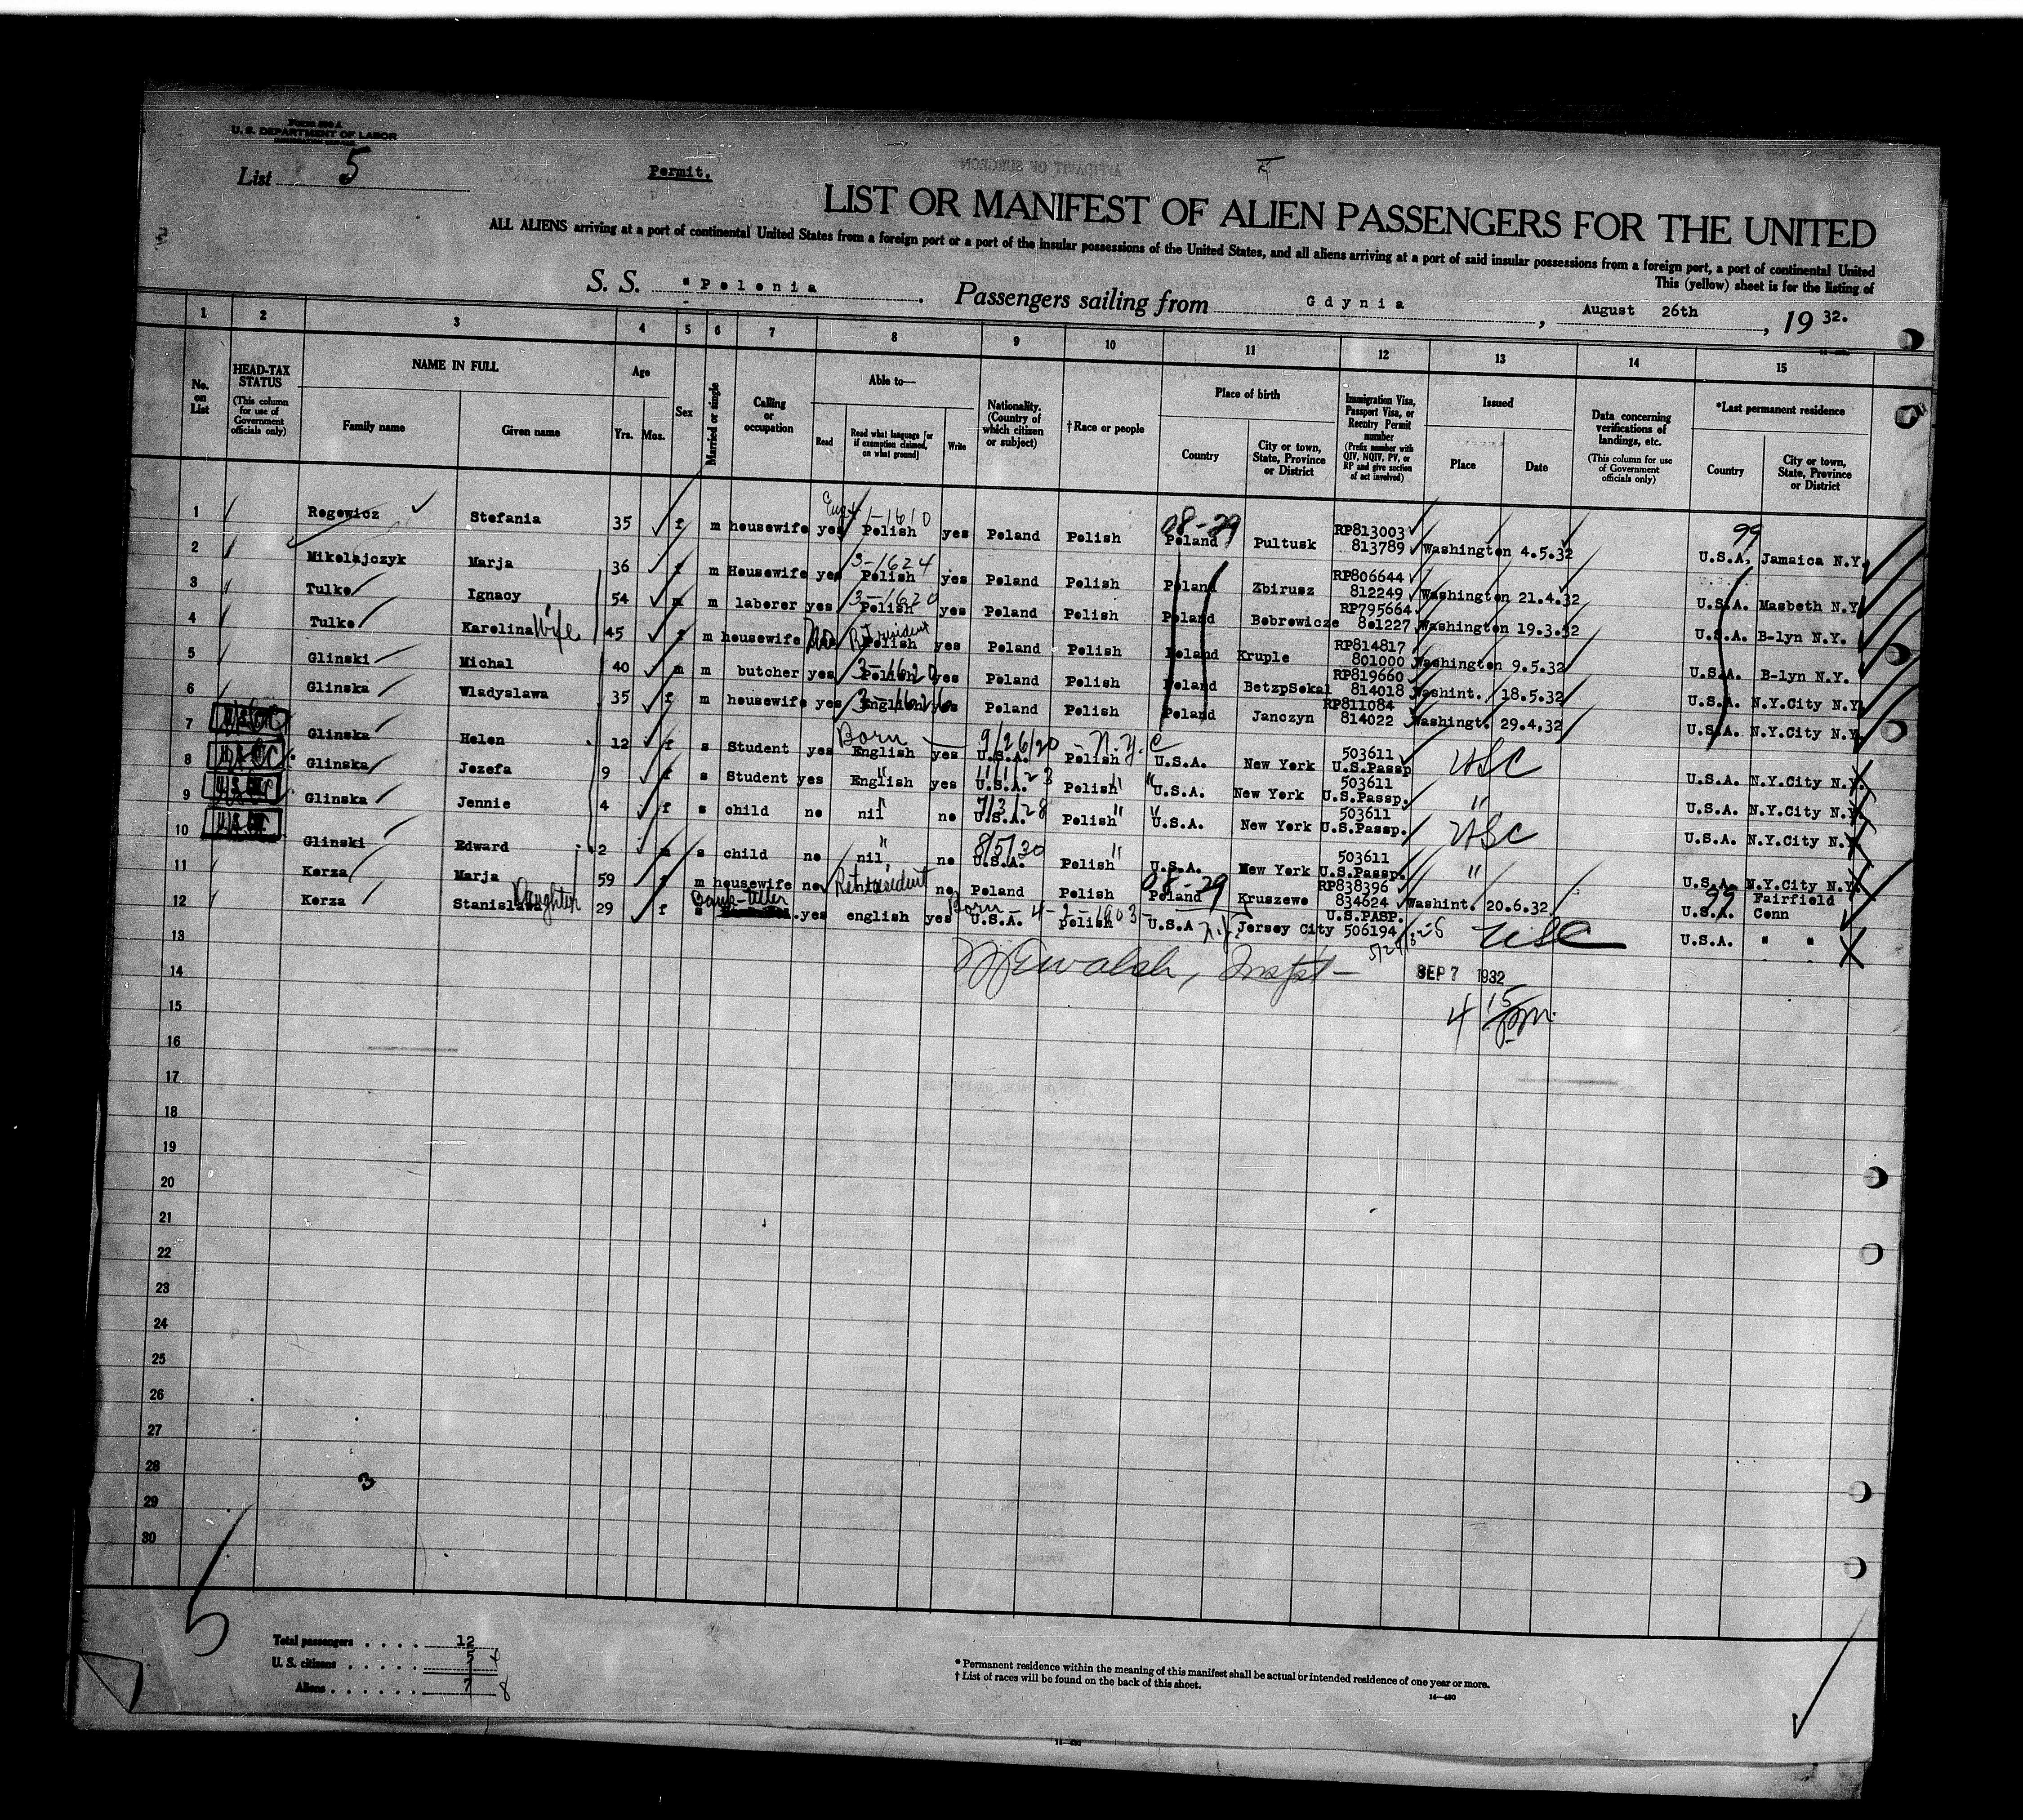 Form 500 A
U. S. DEPARTMENT OF LABOR
IMMIGRATION SERVICE
List 5
Permit.
LIST OR MANIFEST OF ALIEN PASSENGERS FOR THE UNITED
ALL ALIENS arriving at a port of continental United States from a foreign port or a port of the insular possessions of the United States, and all aliens arriving at a port of said insular possessions from a foreign port, a port of continental United
This (yellow) sheet is for the listing of
S. S. "Polonia Passengers sailing from Gdynia, August 26th, 1932.
1 2 3 4 5 6 7 8 9 10 11 12 13 14 15
No. on List
HEAD-TAX STATUS (This column for use of Government officials only)
NAME IN FULL
Family name Given name
Age
Yrs. Mos.
Sex
Married or single
Calling or occupation
Able to—
Read Read what language [or if exemption claimed, on what ground] Write
Nationality. (Country of which citizen or subject)
†Race or people
Place of birth
Country City or town, State, Province or District
Immigration Visa, Passport Visa, or Reentry Permit number (Prefix number with QIV, NQIV, PV, or RP and give section of act involved)
Issued
Place Date
Data concerning verifications of landings, etc. (This column for use of Government officials only)
*Last permanent residence
Country City or town, State, Province or District
1 Rogowicz Stefania 35 f m housewife yes 1-1610 Polish yes Poland Polish 08-29 Poland Pultusk RP813003 813789 Washington 4.5.32 99 U.S.A. Jamaica N.Y.
2 Mikolajczyk Marja 36 f m Housewife yes 3-1624 Polish yes Poland Polish Poland Zbirusz RP806644 812249 Washington 21.4.32 U.S.A. Masbeth N.Y.
3 Tulko Ignacy 54 m m laborer yes 3-1620 Polish yes Poland Polish Poland Bobrowicze RP795664 801227 Washington 19.3.32 U.S.A. B-lyn N.Y.
4 Tulko Karolina Wife 45 f m housewife Ret resident Polish yes Poland Polish Poland Kruple RP814817 801000 Washington 9.5.32 U.S.A. B-lyn N.Y.
5 Glinski Michal 40 m m butcher yes 3-1620 Polish yes Poland Polish Poland BetzpSokal RP819660 814018 Washint. 18.5.32 U.S.A. N.Y.City N.Y.
6 Glinska Wladyslawa 35 f m housewife yes 3-1626 English yes Poland Polish Poland Janczyn RP811084 814022 Washingt. 29.4.32 U.S.A. N.Y.City N.Y.
7 Glinska Helen 12 f s Student yes Born English yes 9/26/20 - N.Y.C U.S.A. Polish U.S.A. New York 503611 U.S.Passp USC U.S.A. N.Y.City N.Y.
8 Glinska Jozefa 9 f s Student yes " English yes U.S.A. Polish " " U.S.A. New York 503611 U.S.Passp. " U.S.A. N.Y.City N.Y.
9 Glinska Jennie 4 f s child no " nil no 7/3/28 U.S.A. Polish " " U.S.A. New York 503611 U.S.Passp. USC U.S.A. N.Y.City N.Y.
10 Glinski Edward 2 m s child no " nil, no 8/5/30 U.S.A. Polish " U.S.A. New York 503611 U.S.Passp. " U.S.A. N.Y.City N.Y.
11 Korza Marja 59 f m housewife no Ret resident no Poland Polish 08-29 Poland Kruszewo RP838396 834624 Washint. 20.6.32 99 U.S.A. Fairfield Conn
12 Korza Stanislawa Daughter 29 f s Bank-teller yes english yes Born - 4-2-1903 - U.S.A. polish U.S.A N.J. Jersey City U.S.PASP. 506194 USC U.S.A. " "
13
14 Insp't - SEP 7 1932
15 4 15 pm.
16
17
18
19
20
21
22
23
24
25
26
27
28
3
29
30
5
Total passengers . . . . 12
U. S. citizens . . . . . 5 4
Aliens . . . . . . 7 8
* Permanent residence within the meaning of this manifest shall be actual or intended residence of one year or more.
† List of races will be found on the back of this sheet.
14—430
14—430